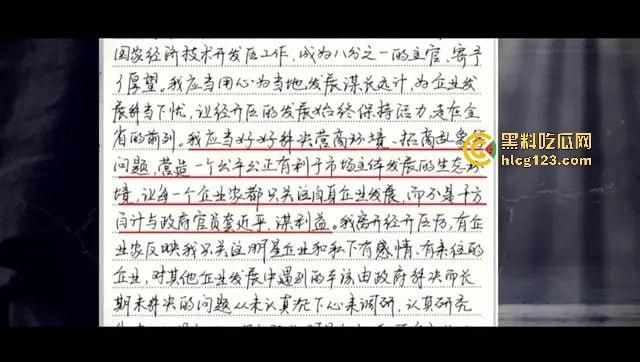 国家经济技术开发区工作,成为八分之一的主官,寄予
了厚望。我应当用心为当地发展谋长远计,为企业发
展解当下忧,让经开区的发展始终保持活力,走在全
省的前列。我应当好好解决营商环境、招商乱象
问题,营造一个公平公正有利于市场主体发展的生态环
境,让每一个企业家都只关注自身企业发展,而不是千方
百计与政府官员套近乎、谋利益。我离开经开区后,有企
业家反映我只关注明星企业和私下有感情、有来往的
企业,对其他企业发展中遇到的本该由政府解决而长
期未解决的问题从未认真沉下心来调研,认真研究
黑料吃瓜网
hlcg123.com